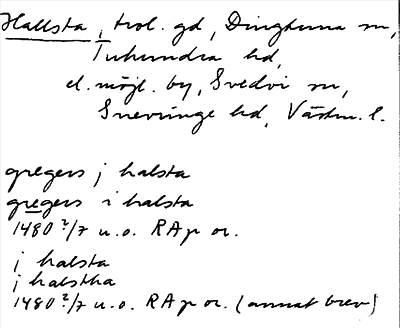 Hallsta, trol. gd, Dingtuna sn,
Tuhundra hd,
el. möjl. by, Svedvi sn,
Snevringe hd, Västm. l.
gregers j halsta
gregers i halsta
1480 2/7 u.o. RAp or.
j halsta
j halstha
1480 2/7 u.o. RAp or. (annat brev)